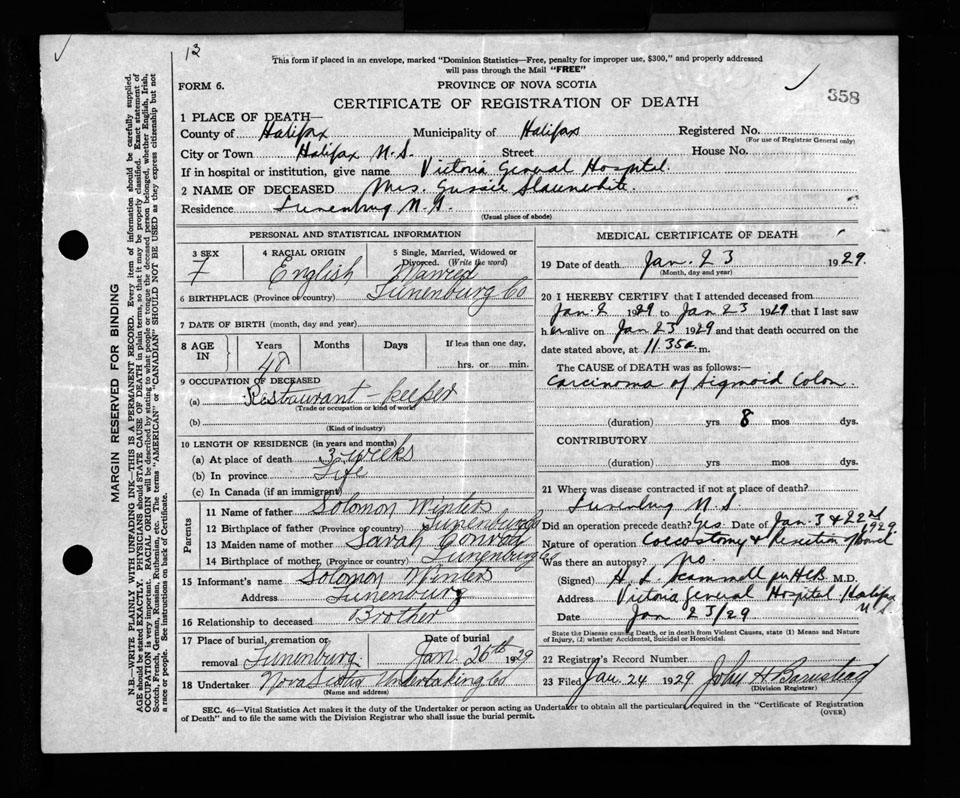 13
This form if placed in an envelope, marked "Dominion Statistics—Free, penalty for improper use, $300," and properly addressed
will pass through the Mail "FREE"
FORM 6.
PROVINCE OF NOVA SCOTIA
358
CERTIFICATE OF REGISTRATION OF DEATH
1 PLACE OF DEATH—
County of Halifax Municipality of Halifax Registered No.
(For use of Registrar General only)
City or Town Halifax N.S. Street House No.
If in hospital or institution, give name Victoria General Hospital
2 NAME OF DECEASED Mrs. Gussie Slaunwhite
Residence Lunenburg N.S.
(Usual place of abode)
PERSONAL AND STATISTICAL INFORMATION
3 SEX 4 RACIAL ORIGIN 5 Single, Married, Widowed or
Divorced. (Write the word)
F English Married
6 BIRTHPLACE (Province or country) Lunenburg Co
7 DATE OF BIRTH (month, day and year)
8 AGE IN Years Months Days If less than one day,
48 hrs. or min.
9 OCCUPATION OF DECEASED
(a) Restaurant - keeper
(Trade or occupation or kind of work)
(b)
(Kind of industry)
10 LENGTH OF RESIDENCE (in years and months)
(a) At place of death 3 weeks
(b) In province Life
(c) In Canada (if an immigrant)
Parents
11 Name of father Solomon Winters
12 Birthplace of father (Province or country) Lunenburg Co
13 Maiden name of mother Sarah Conrad
14 Birthplace of mother (Province or country) Lunenburg Co
15 Informant's name Solomon Winters
Address Lunenburg
16 Relationship to deceased Brother
17 Place of burial, cremation or Date of burial
removal Lunenburg Jan. 26th 1929
18 Undertaker Nova Scotia Undertaking Co
(Name and address)
MEDICAL CERTIFICATE OF DEATH
19 Date of death Jan. 23 1929.
(Month, day and year)
20 I HEREBY CERTIFY that I attended deceased from
Jan. 2 1929 to Jan 23 1929 that I last saw
her alive on Jan 23 1929 and that death occurred on
date stated above, at 11.35 a. m.
The CAUSE OF DEATH was as follows:—
Carcinoma of Sigmoid Colon
(duration) yrs 8 mos dys.
CONTRIBUTORY
(duration) yrs. mos. dys.
21 Where was disease contracted if not at place of death?
Lunenburg N.S
Did an operation precede death? Yes. Date of Jan. 3 & 22nd 1929
Nature of operation Coecostomy & Resection of bowel
Was there an autopsy? no
(Signed) H. L Scammell per HCB M.D.
Address Victoria General Hospital Halifax N.S
Date Jan 23/29
State the Disease causing Death, or in death from Violent Causes, state (1) Means and Nature
of Injury, (2) whether Accidental, Suicidal or Homicidal.
22 Registry's Record Number
23 Filed Jan. 24 1929 John H Barnstead
(Division Registrar)
SEC. 46—Vital Statistics Act makes it the duty of the Undertaker or person acting as Undertaker to obtain all the particulars required in the "Certificate of Registration
of Death" and to file the same with the Division Registrar who shall issue the burial permit.
(OVER)
MARGIN RESERVED FOR BINDING
N.B.—WRITE PLAINLY WITH UNFADING INK—THIS IS A PERMANENT RECORD. Every item of information should be carefully supplied.
AGE should be stated EXACTLY. PHYSICIANS should STATE CAUSE OF DEATH in plain terms, so that it may be properly classified. Exact statement of
OCCUPATION is very important. RACIAL ORIGIN will be described by stating to what people or tongue the deceased person belonged, whether English, Irish,
Scotch, French, German, Russian, Ruthenian, etc. The terms "AMERICAN" or "CANADIAN" SHOULD NOT BE USED as they express citizenship but not
a race or people. See instructions on back of Certificate.